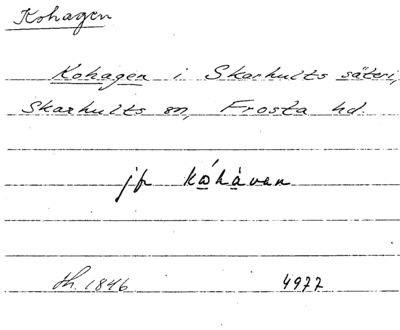 Kohagen
Kohagen i Skarhults säteri,
Skarhults sn, Frosta hd.
jfr kω̊hàvan
th. 1846 4977